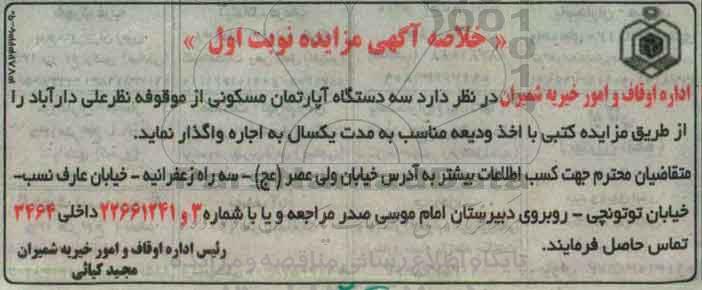 « خلاصه آگهی مزایده نوبت اول »
اداره اوقاف و امور خیریه شمیران در نظر دارد سه دستگاه آپارتمان مسکونی از موقوفه نظرعلی دارآباد را
از طریق مزایده کتبی با اخذ ودیعه مناسب به مدت یکسال به اجاره واگذار نماید.
متقاضیان محترم جهت کسب اطلاعات بیشتر به آدرس خیابان ولی عصر (عج) - سه راه زعفرانیه - خیابان عارف نسب-
خیابان توتونچی - روبروی دبیرستان امام موسی صدر مراجعه و یا با شماره ۳ و ۲۲۶۶۱۲۴۱ داخلی ۳۴۶۴
تماس حاصل فرمایند.
رئیس اداره اوقاف و امور خیریه شمیران
مجید کیائی